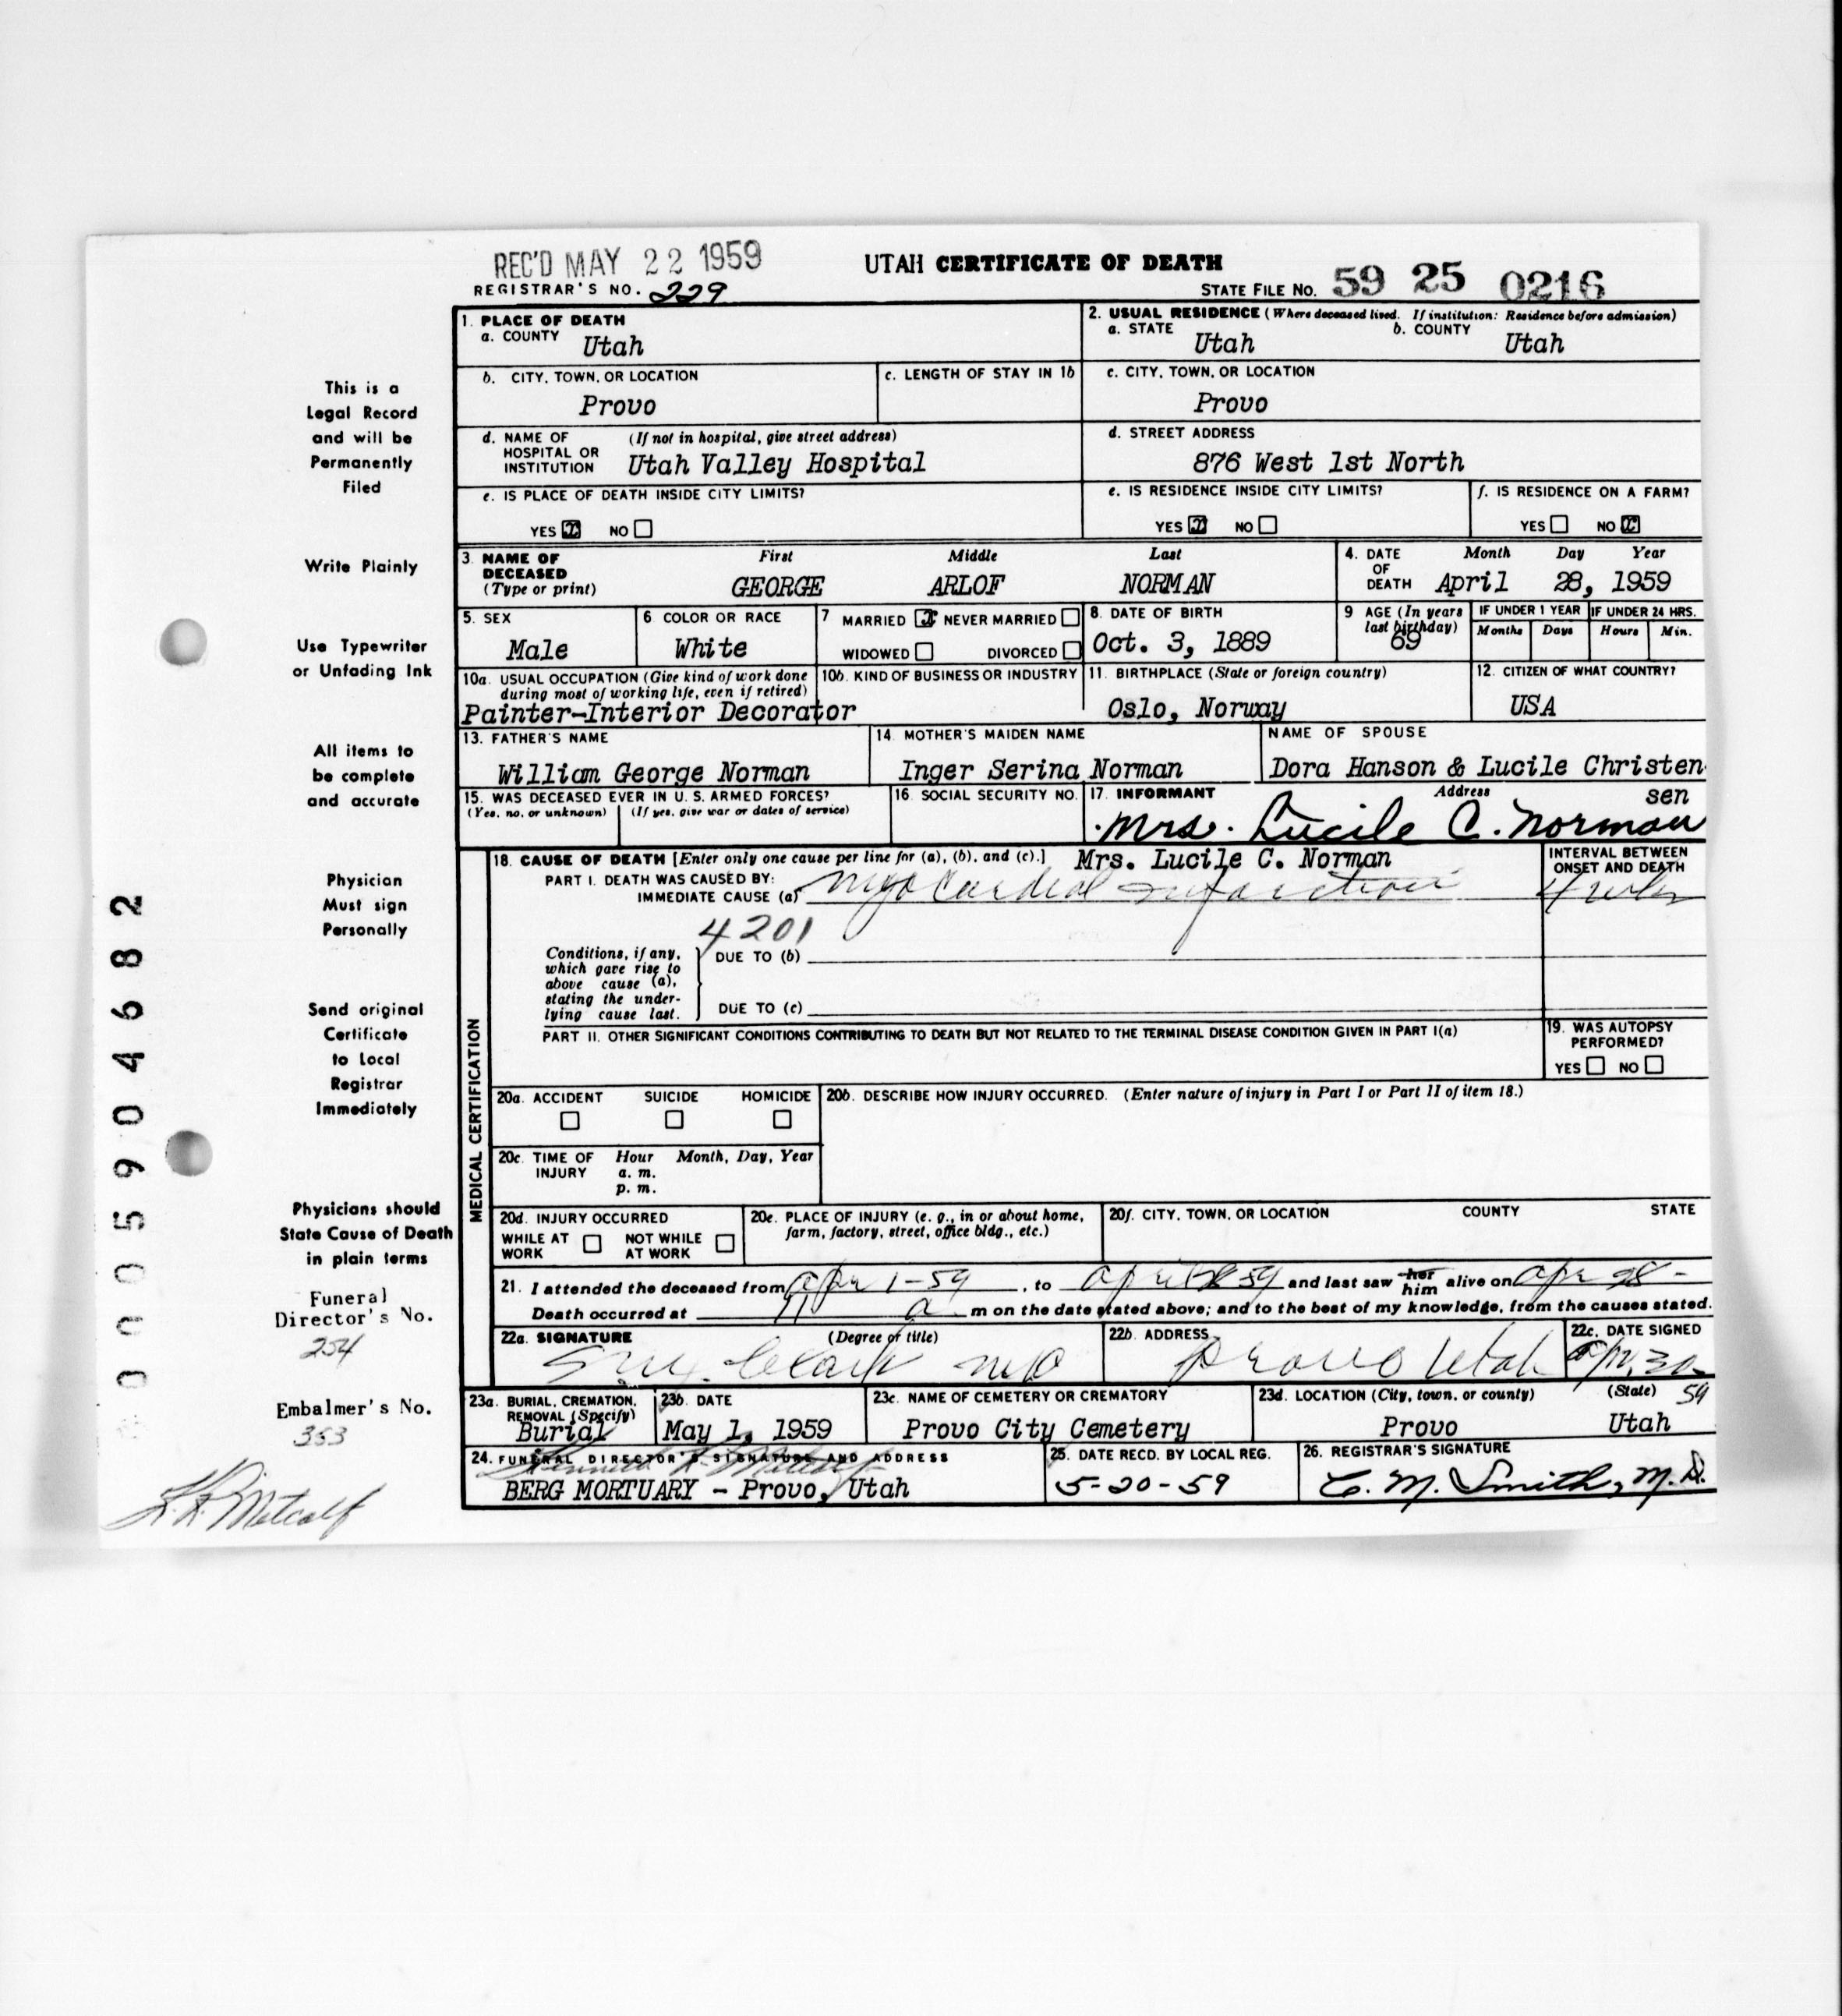 REC'D MAY 22 1959
UTAH CERTIFICATE OF DEATH
REGISTRAR'S NO. 229
STATE FILE NO. 59 25 0216
1. PLACE OF DEATH
a. COUNTY
Utah
2. USUAL RESIDENCE (Where deceased lived. If institution: Residence before admission)
a. STATE
Utah
b. COUNTY
Utah
b. CITY, TOWN, OR LOCATION
Provo
c. LENGTH OF STAY IN 1b
c. CITY, TOWN, OR LOCATION
Provo
d. NAME OF HOSPITAL OR INSTITUTION
(If not in hospital, give street address)
Utah Valley Hospital
d. STREET ADDRESS
876 West 1st North
e. IS PLACE OF DEATH INSIDE CITY LIMITS?
YES x NO
e. IS RESIDENCE INSIDE CITY LIMITS?
YES x NO
f. IS RESIDENCE ON A FARM?
YES NO x
3. NAME OF DECEASED
(Type or print)
First Middle Last
GEORGE ARLOF NORMAN
4. DATE OF DEATH
Month Day Year
April 28, 1959
5. SEX
Male
6 COLOR OR RACE
White
7 MARRIED x NEVER MARRIED
WIDOWED DIVORCED
8. DATE OF BIRTH
Oct. 3, 1889
9 AGE (In years last birthday)
69
IF UNDER 1 YEAR
Months Days
IF UNDER 24 HRS.
Hours Min.
10a. USUAL OCCUPATION (Give kind of work done during most of working life, even if retired)
Painter-Interior Decorator
10b. KIND OF BUSINESS OR INDUSTRY
11. BIRTHPLACE (State or foreign country)
Oslo, Norway
12. CITIZEN OF WHAT COUNTRY?
USA
13. FATHER'S NAME
William George Norman
14. MOTHER'S MAIDEN NAME
Inger Serina Norman
NAME OF SPOUSE
Dora Hanson & Lucile Christen
sen
15. WAS DECEASED EVER IN U. S. ARMED FORCES?
(Yes, no, or unknown) (If yes, give war or dates of service)
16. SOCIAL SECURITY NO.
17. INFORMANT Address
Mrs. Lucile C. Norman
Mrs. Lucile C. Norman
MEDICAL CERTIFICATION
18. CAUSE OF DEATH [Enter only one cause per line for (a), (b), and (c).]
PART I. DEATH WAS CAUSED BY:
IMMEDIATE CAUSE (a) Myocardial infarction
INTERVAL BETWEEN ONSET AND DEATH
4 wks
4201
Conditions, if any, which gave rise to above cause (a), stating the underlying cause last.
DUE TO (b)
DUE TO (c)
PART II. OTHER SIGNIFICANT CONDITIONS CONTRIBUTING TO DEATH BUT NOT RELATED TO THE TERMINAL DISEASE CONDITION GIVEN IN PART I(a)
19. WAS AUTOPSY PERFORMED?
YES NO
20a. ACCIDENT SUICIDE HOMICIDE
20b. DESCRIBE HOW INJURY OCCURRED. (Enter nature of injury in Part I or Part II of item 18.)
20c. TIME OF INJURY
Hour Month, Day, Year
a. m.
p. m.
20d. INJURY OCCURRED
WHILE AT WORK NOT WHILE AT WORK
20e. PLACE OF INJURY (e. g., in or about home, farm, factory, street, office bldg., etc.)
20f. CITY, TOWN, OR LOCATION COUNTY STATE
21. I attended the deceased from Apr 1-59, to April 28 59 and last saw her him alive on Apr 28-
Death occurred at 11 a m on the date stated above; and to the best of my knowledge, from the causes stated.
22a. SIGNATURE (Degree or title)
Clark MD
22b. ADDRESS
Provo Utah
22c. DATE SIGNED
Apr. 30
59
23a. BURIAL, CREMATION, REMOVAL (Specify)
Burial
23b. DATE
May 1, 1959
23c. NAME OF CEMETERY OR CREMATORY
Provo City Cemetery
23d. LOCATION (City, town, or county) (State)
Provo Utah
24. FUNERAL DIRECTOR'S SIGNATURE AND ADDRESS
BERG MORTUARY - Provo, Utah
25. DATE RECD. BY LOCAL REG.
5-20-59
26. REGISTRAR'S SIGNATURE
C. M. Smith, M.D.
This is a
Legal Record
and will be
Permanently
Filed
Write Plainly
Use Typewriter
or Unfading Ink
All items to
be complete
and accurate
Physician
Must sign
Personally
Send original
Certificate
to Local
Registrar
Immediately
Physicians should
State Cause of Death
in plain terms
Funeral
Director's No.
254
Embalmer's No.
353
K. K. Metcalf
0005904682